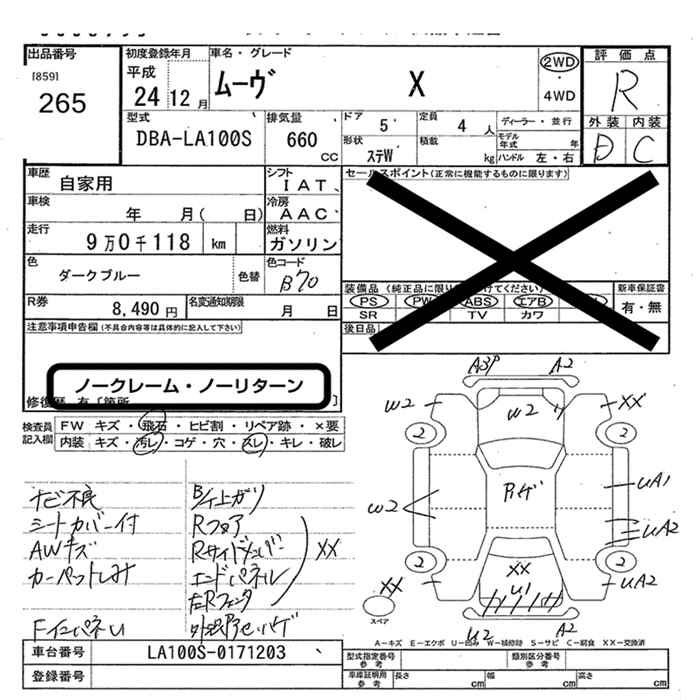 出品番号
[859]
265
初度登録年月
平成
24 12 月
車名・グレード
ムーヴ X
2WD
4WD
評価点
R
外装 内装
D C
型式
DBA-LA100S
排気量
660 cc
ドア
5
定員
4 人
ディーラー・並行
形状
ステW
積載
kg
モデル年式 年
ハンドル 左・右
車歴
自家用
シフト
IAT
車検
年 月( 日)
冷房
AAC
走行
9万0千118 km
燃料
ガソリン
色
ダークブルー
色替
色コード
B70
R券
8,490 円
名変通知期限
月 日
セールスポイント(正常に機能するものに限ります)
装備品(純正品に限り
けてください)
PS PW ABS エアB
SR TV カワ
新車保証書
有・無
後日品
注意事項申告欄(不具合内容等は具体的に記入して下さい)
ノークレーム・ノーリターン
検査員記入欄
FW キズ・飛石・ヒビ割・リペア跡・×要
内装 キズ・汚レ・コゲ・穴・スレ・キレ・破レ
ナビ不良
シートカバー付
AWキズ
カーペットしみ
B/イ上ガリ
Rフロア
Rサイドメンバー
エンドパネル
左Rフェンダ
XX
A3P A2
W2 W2 XX
2 2
W2 Rサゲ UA1
UA2
2 2
XX XX U1 UA2
スペア
U2 A2
A-キズ E-エクボ U-凹み W-補修跡 S-サビ C-腐食 XX-交換済
車台番号
LA100S-0171203
登録番号
型式指定番号 参考
類別区分番号 参考
車庫証明用 参考
長さ cm
幅 cm
高さ cm